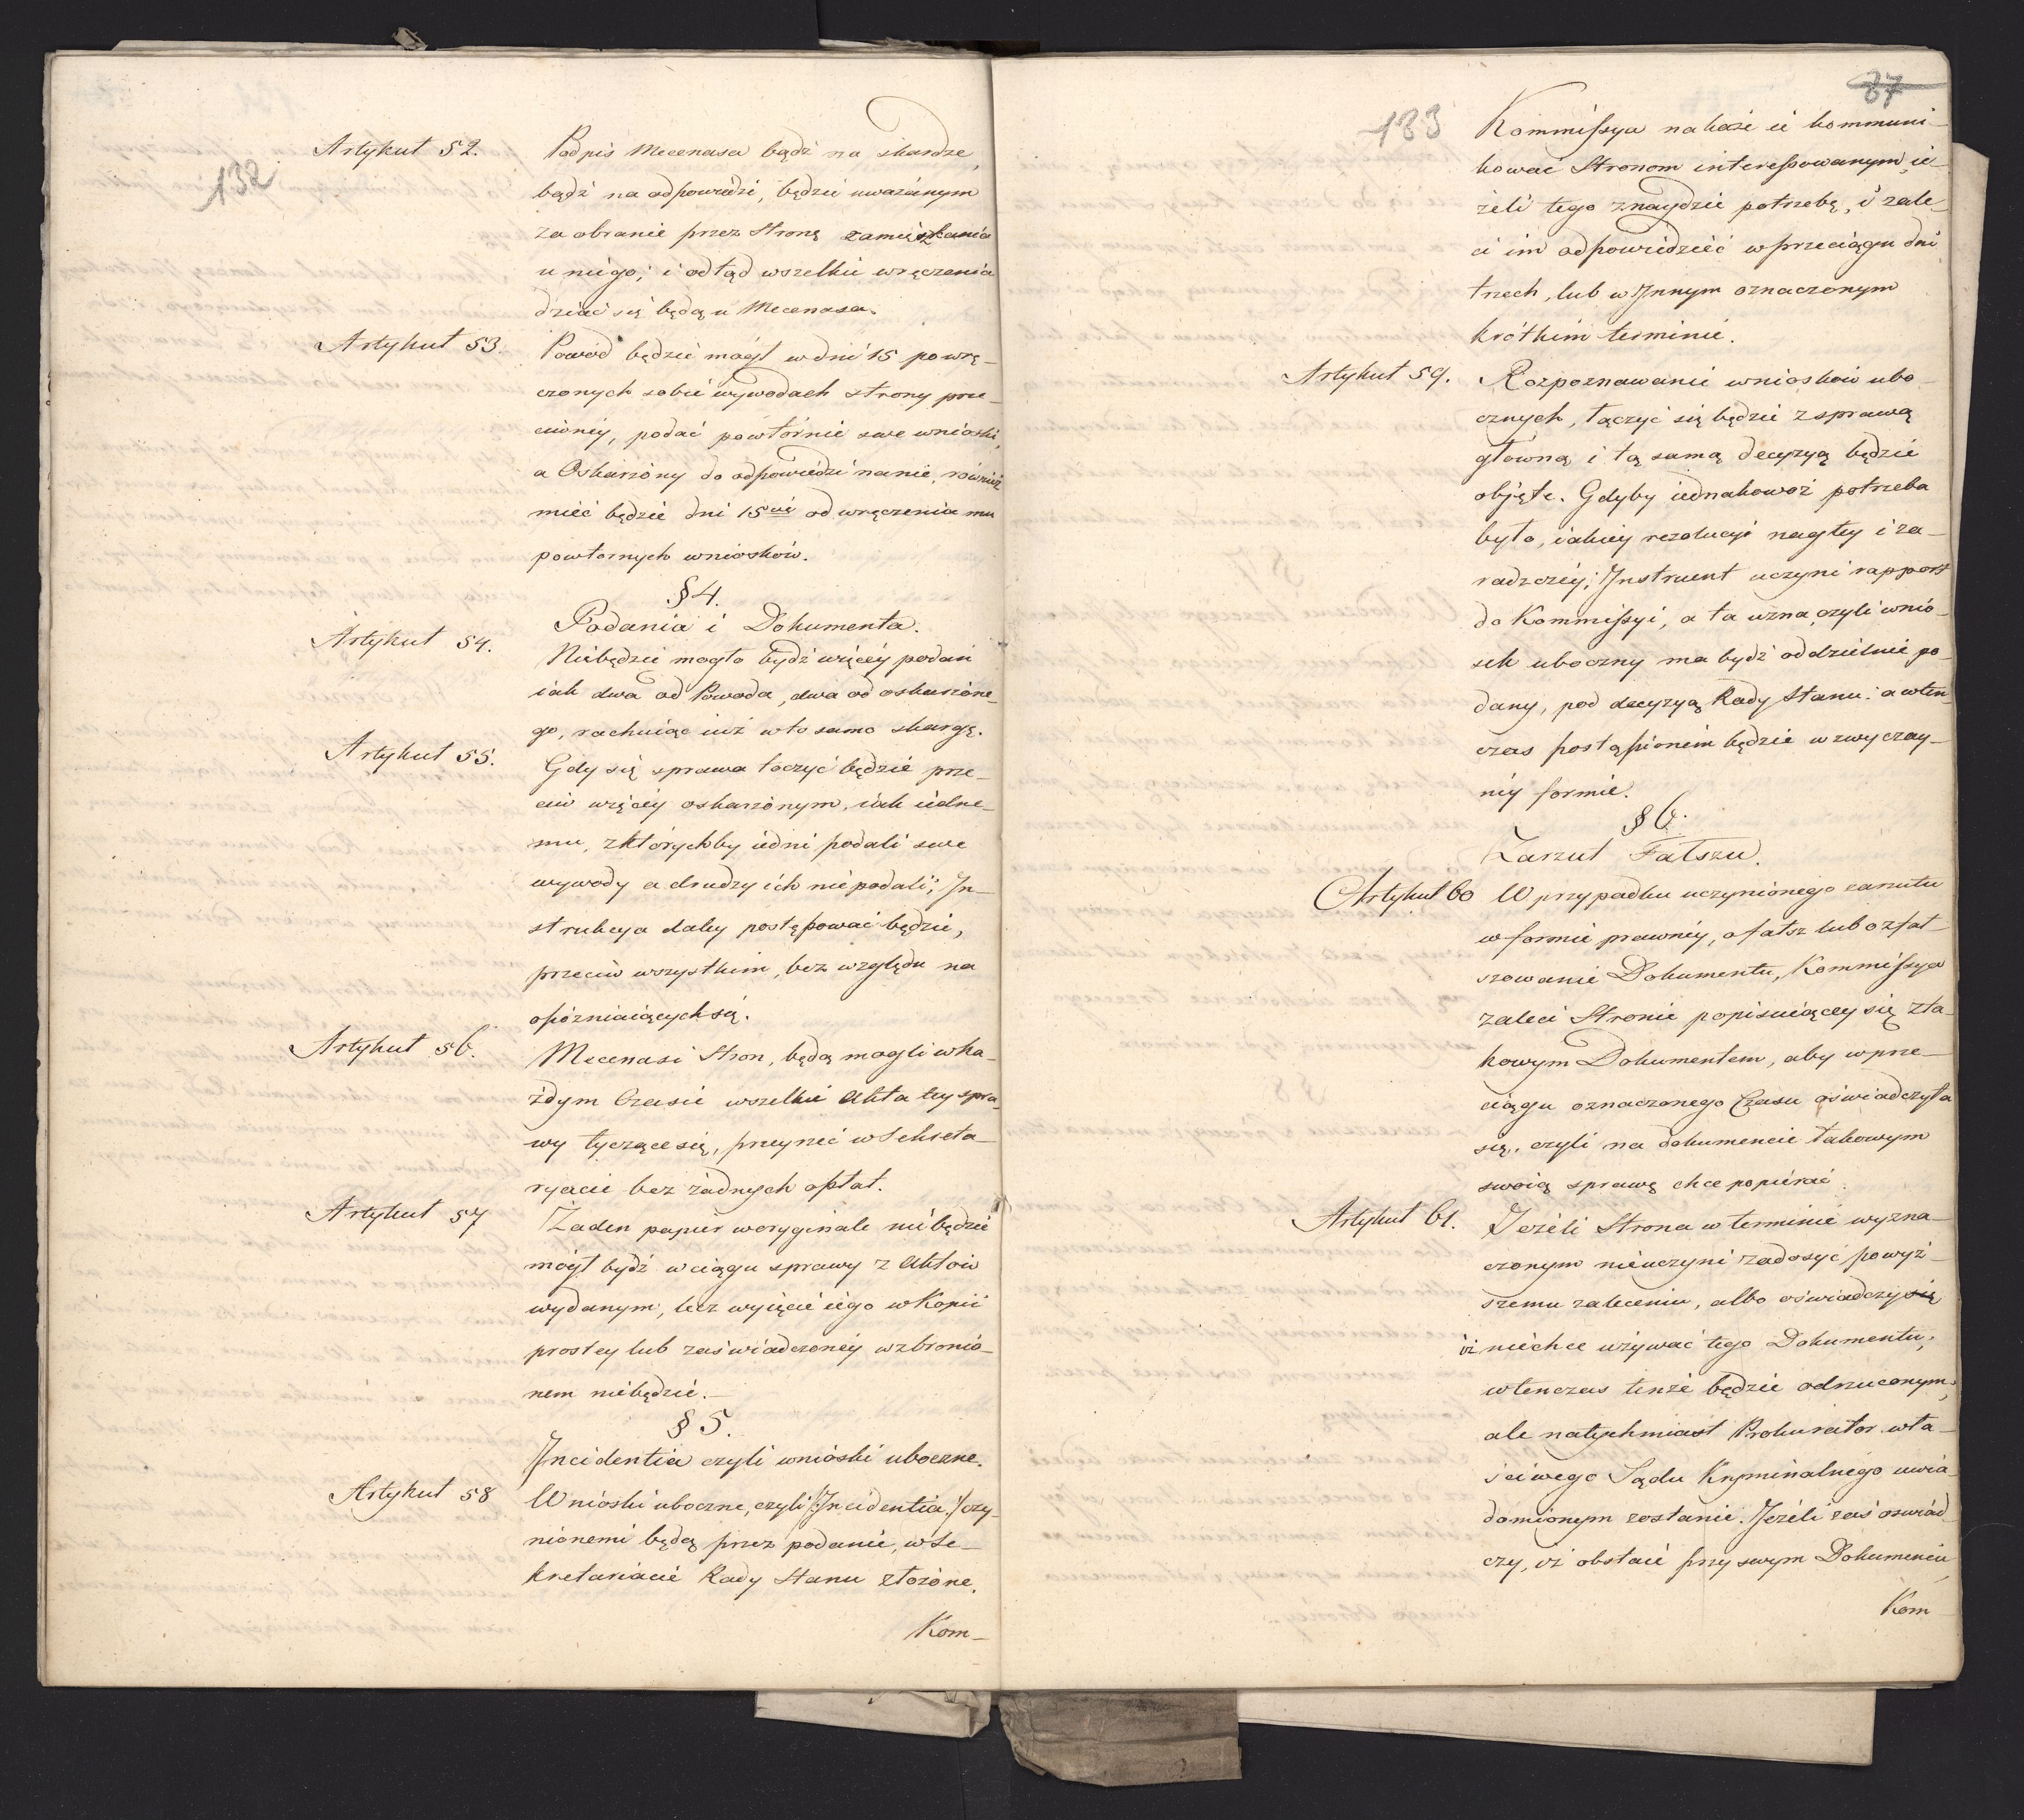 132
Artykuł 52. Podpis Mecenasa bądź na skardze,
bądź na odpowiedzi, będzie uważanym
za obranie przez Stronę zamięszkania
u niego; i odtąd wszelkie wręczenia
dziać się będą u Mecenasa.
Artykuł 53. Powód będzie mógł w dni 15 po wrę-
czonych sobie wywodach strony prze-
ciwney, podać powtórnie swe wnioski,
a Oskarżony do odpowiedzi nanie, również
mieć będzie dni 15cie od wręczenia mu
powtornych wniosków.
§ 4.
Podania i Dokumenta.
Artykuł 54. Niebędzie mogło bydź więcey podań
iak dwa od Powoda, dwa od oskarżone-
go, rachuiąc iuż w to samo skargę.
Artykuł 55. Gdy się sprawa toczyć będzie prze-
ciw więcey oskarżonym, iak iedne-
mu, z którychby iedni podali swe
wywody a drudzy ich nie podali; In-
strukcya daley postępować będzie,
przeciw wszystkim, bez względu na
opóźniaiących się.
Artykuł 56. Mecenasi Stron, będą mogli w ka-
żdym Czasie wszelkie Akta tey spra-
wy tyczące się, przeyrzeć w Sekreta-
ryacie bez żadnych opłat.
Artykuł 57 Żaden papier w oryginale nie będzie
mógł bydź w ciągu sprawy z Aktow
wydanym, lecz wyięcie iego w Kopii
prostey lub zaświadczoney wzbronio-
nem niebędzie.—
§ 5.
Incidentia czyli wnioski uboczne.
Artykuł 58 Wnioski uboczne, czyli /:Incidentia:/ czy-
nionemi będą przez podanie, w Se-
kretariacie Rady Stanu złożone.
Kom-
87
133
Kommissya nakaże ie kommuni-
kować Stronom interessowanym ie-
żeli tego znaydzie potrzebę, i zale-
ci im odpowiedzieć w przeciągu dni
trzech, lub w Innym oznaczonym
krótkim terminie.
Artykuł 59. Rozpoznawanie wniosków ubo-
cznych, łączyć się będzie z sprawą
główną i tą samą decyzyą będzie
objęte. Gdyby iednakowoż potrzeba
było, iakiey rezolucyi nagłey i za-
radzczey; Instruent uczyni rapport
do Kommissyi, a ta uzna, czyli wnio-
sek uboczny ma bydź oddzielnie po-
dany, pod decyzyą Rady Stanu: a wten-
czas postąpionem będzie w zwyczay-
ney formie.
§ 6.
Zarzut Fałszu.
Artykuł 60 W przypadku uczynionego zarzutu
w formie prawney, o fałsz lub o zfał-
szowanie Dokumentu, Kommissya
zaleci Stronie popisuiącey się z ta-
kowym Dokumentem, aby w prze-
ciągu oznaczonego Czasu oświadczyła
się, czyli na dokumencie takowym
swoią sprawę chce popierać.
Artykuł 61. Jeżeli Strona w terminie wyzna-
czonym nieuczyni zadosyć powyż-
szemu zaleceniu, albo oświadczy się
iż niechce używać tego Dokumentu,
wtenczas tenże będzie odrzuconym,
ale natychmiast Prokurator wła-
ściwego Sądu Kryminalnego uwia-
domionym zostanie. Jeżeli zaś oświad-
czy, iż obstaie przy swym Dokumencie,
Kom-